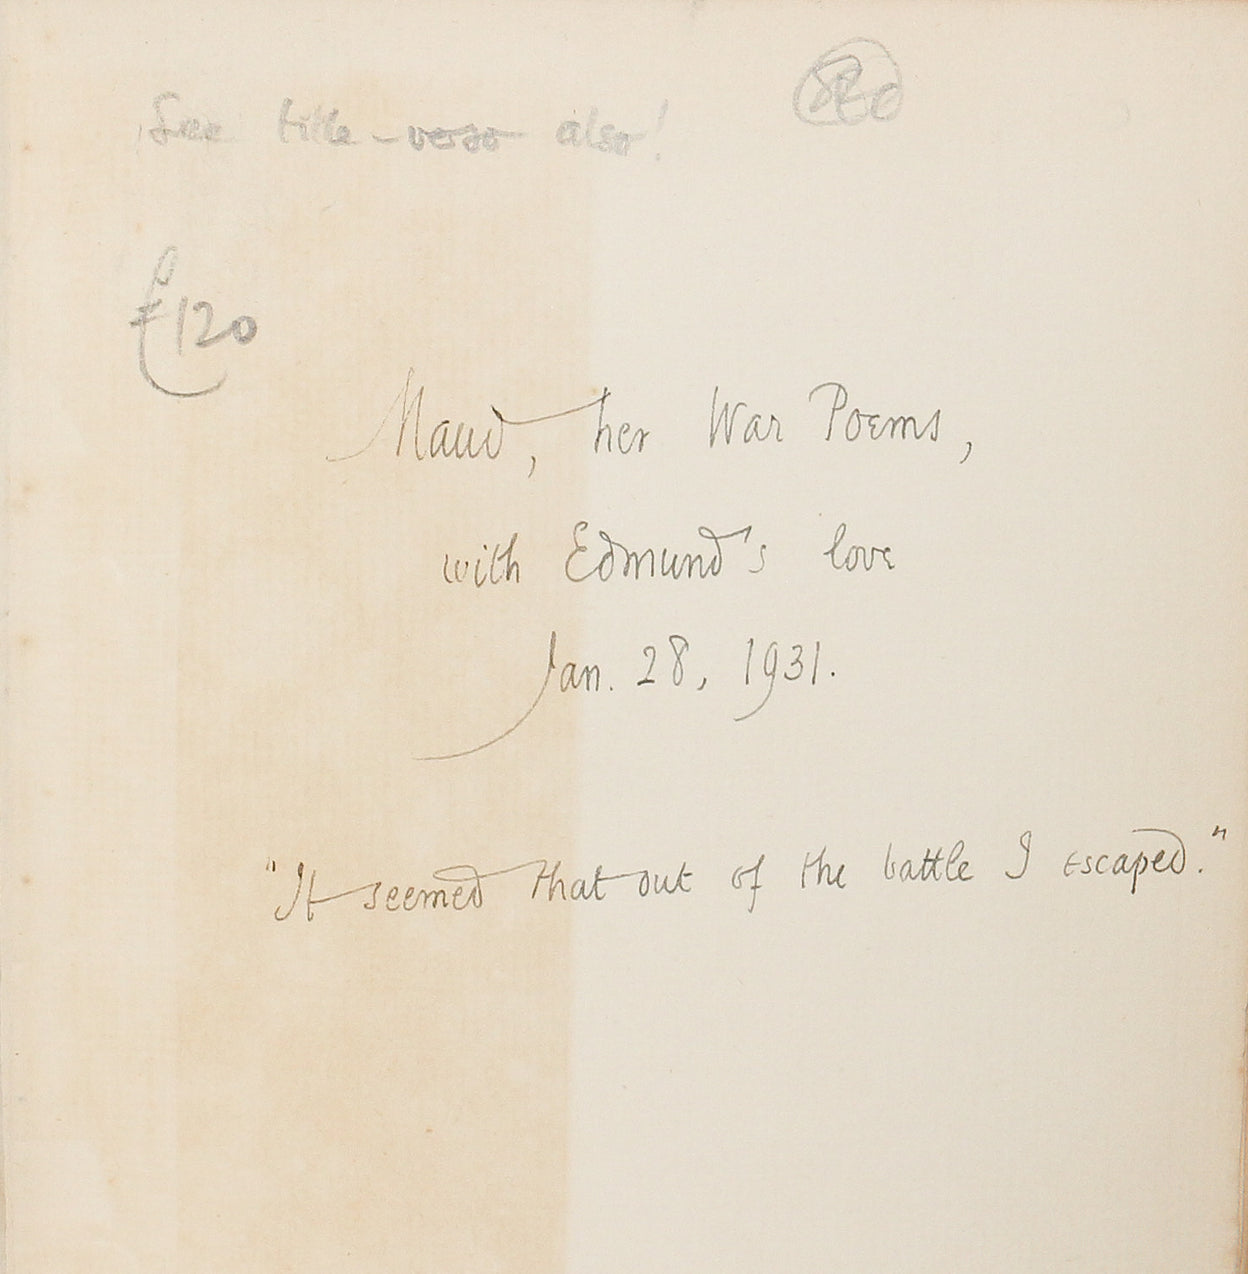 See title-verso also!
£120
Maud, her War Poems,
with Edmund's love
Jan. 28, 1931.
"It seemed that out of the battle I escaped."